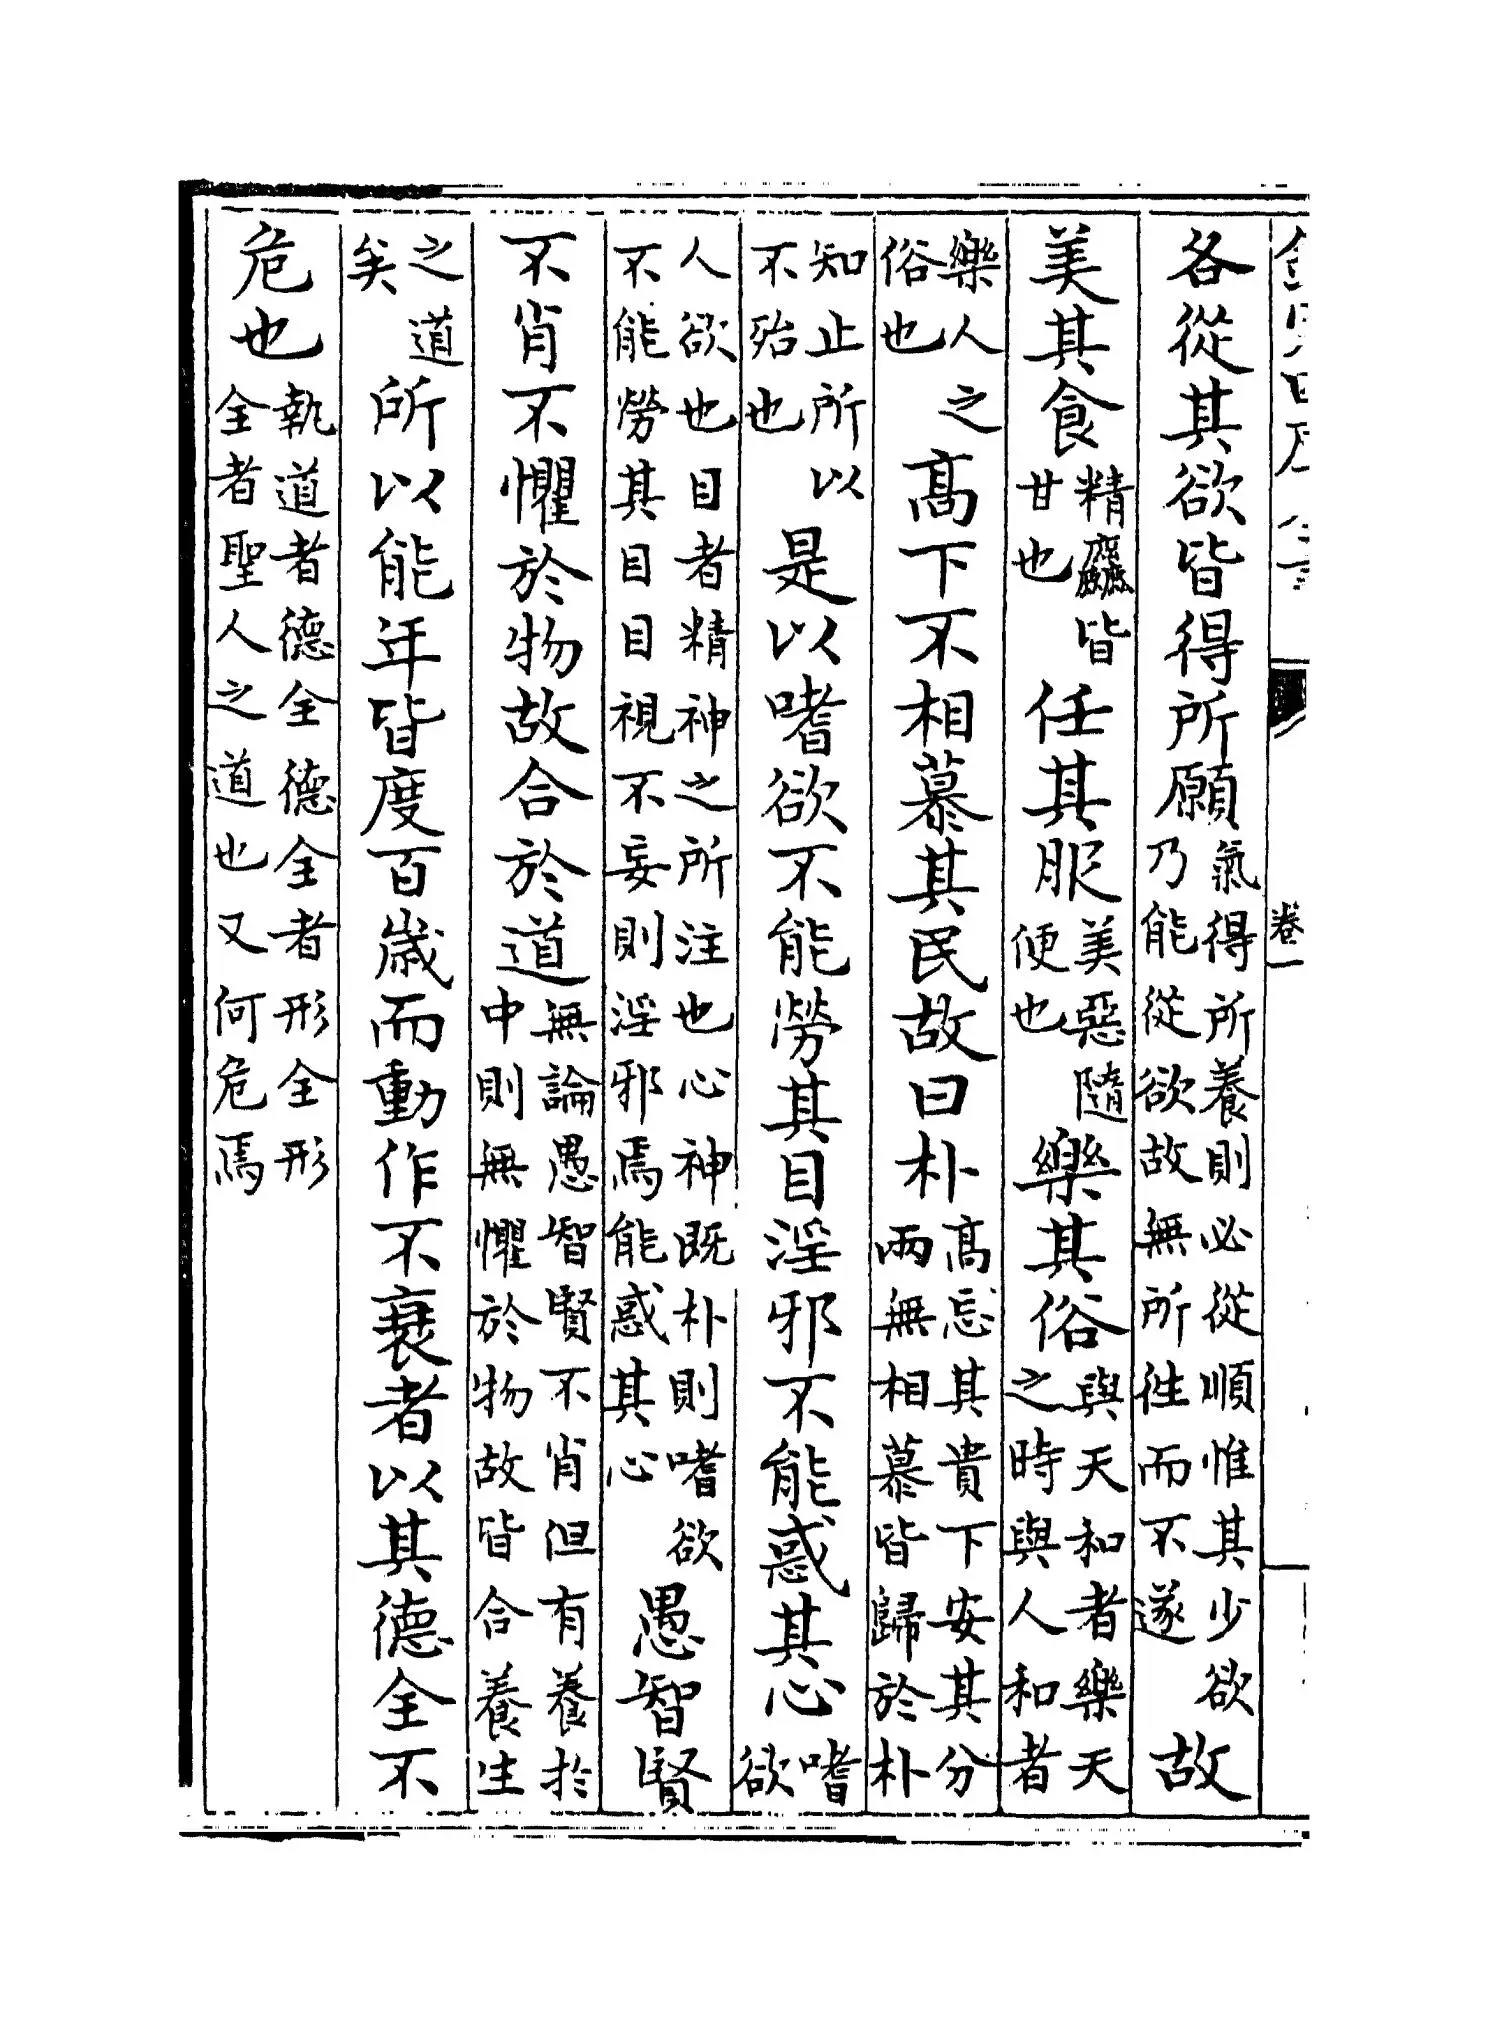 卷一
各從其欲皆得所願氣得所養則必從順惟其少欲乃能從欲故無所往而不遂故
美其食精麤皆甘也任其服美惡隨便也樂其俗與天和者樂天之時與人和者
樂人之俗也髙下不相慕其民故曰朴髙忘其貴下安其分兩無相慕皆歸於朴
知止所以不殆也是以嗜欲不能勞其目淫邪不能惑其心嗜欲
人欲也目者精神之所注也心神既朴則嗜欲不能勞其目目視不妄則淫邪焉能惑其心愚智賢
不肖不懼於物故合於道無論愚智賢不肖但有養於中則無懼於物故皆合養生
之道矣所以能年皆度百歲而動作不衰者以其德全不
危也執道者德全德全者形全形全者聖人之道也又何危焉